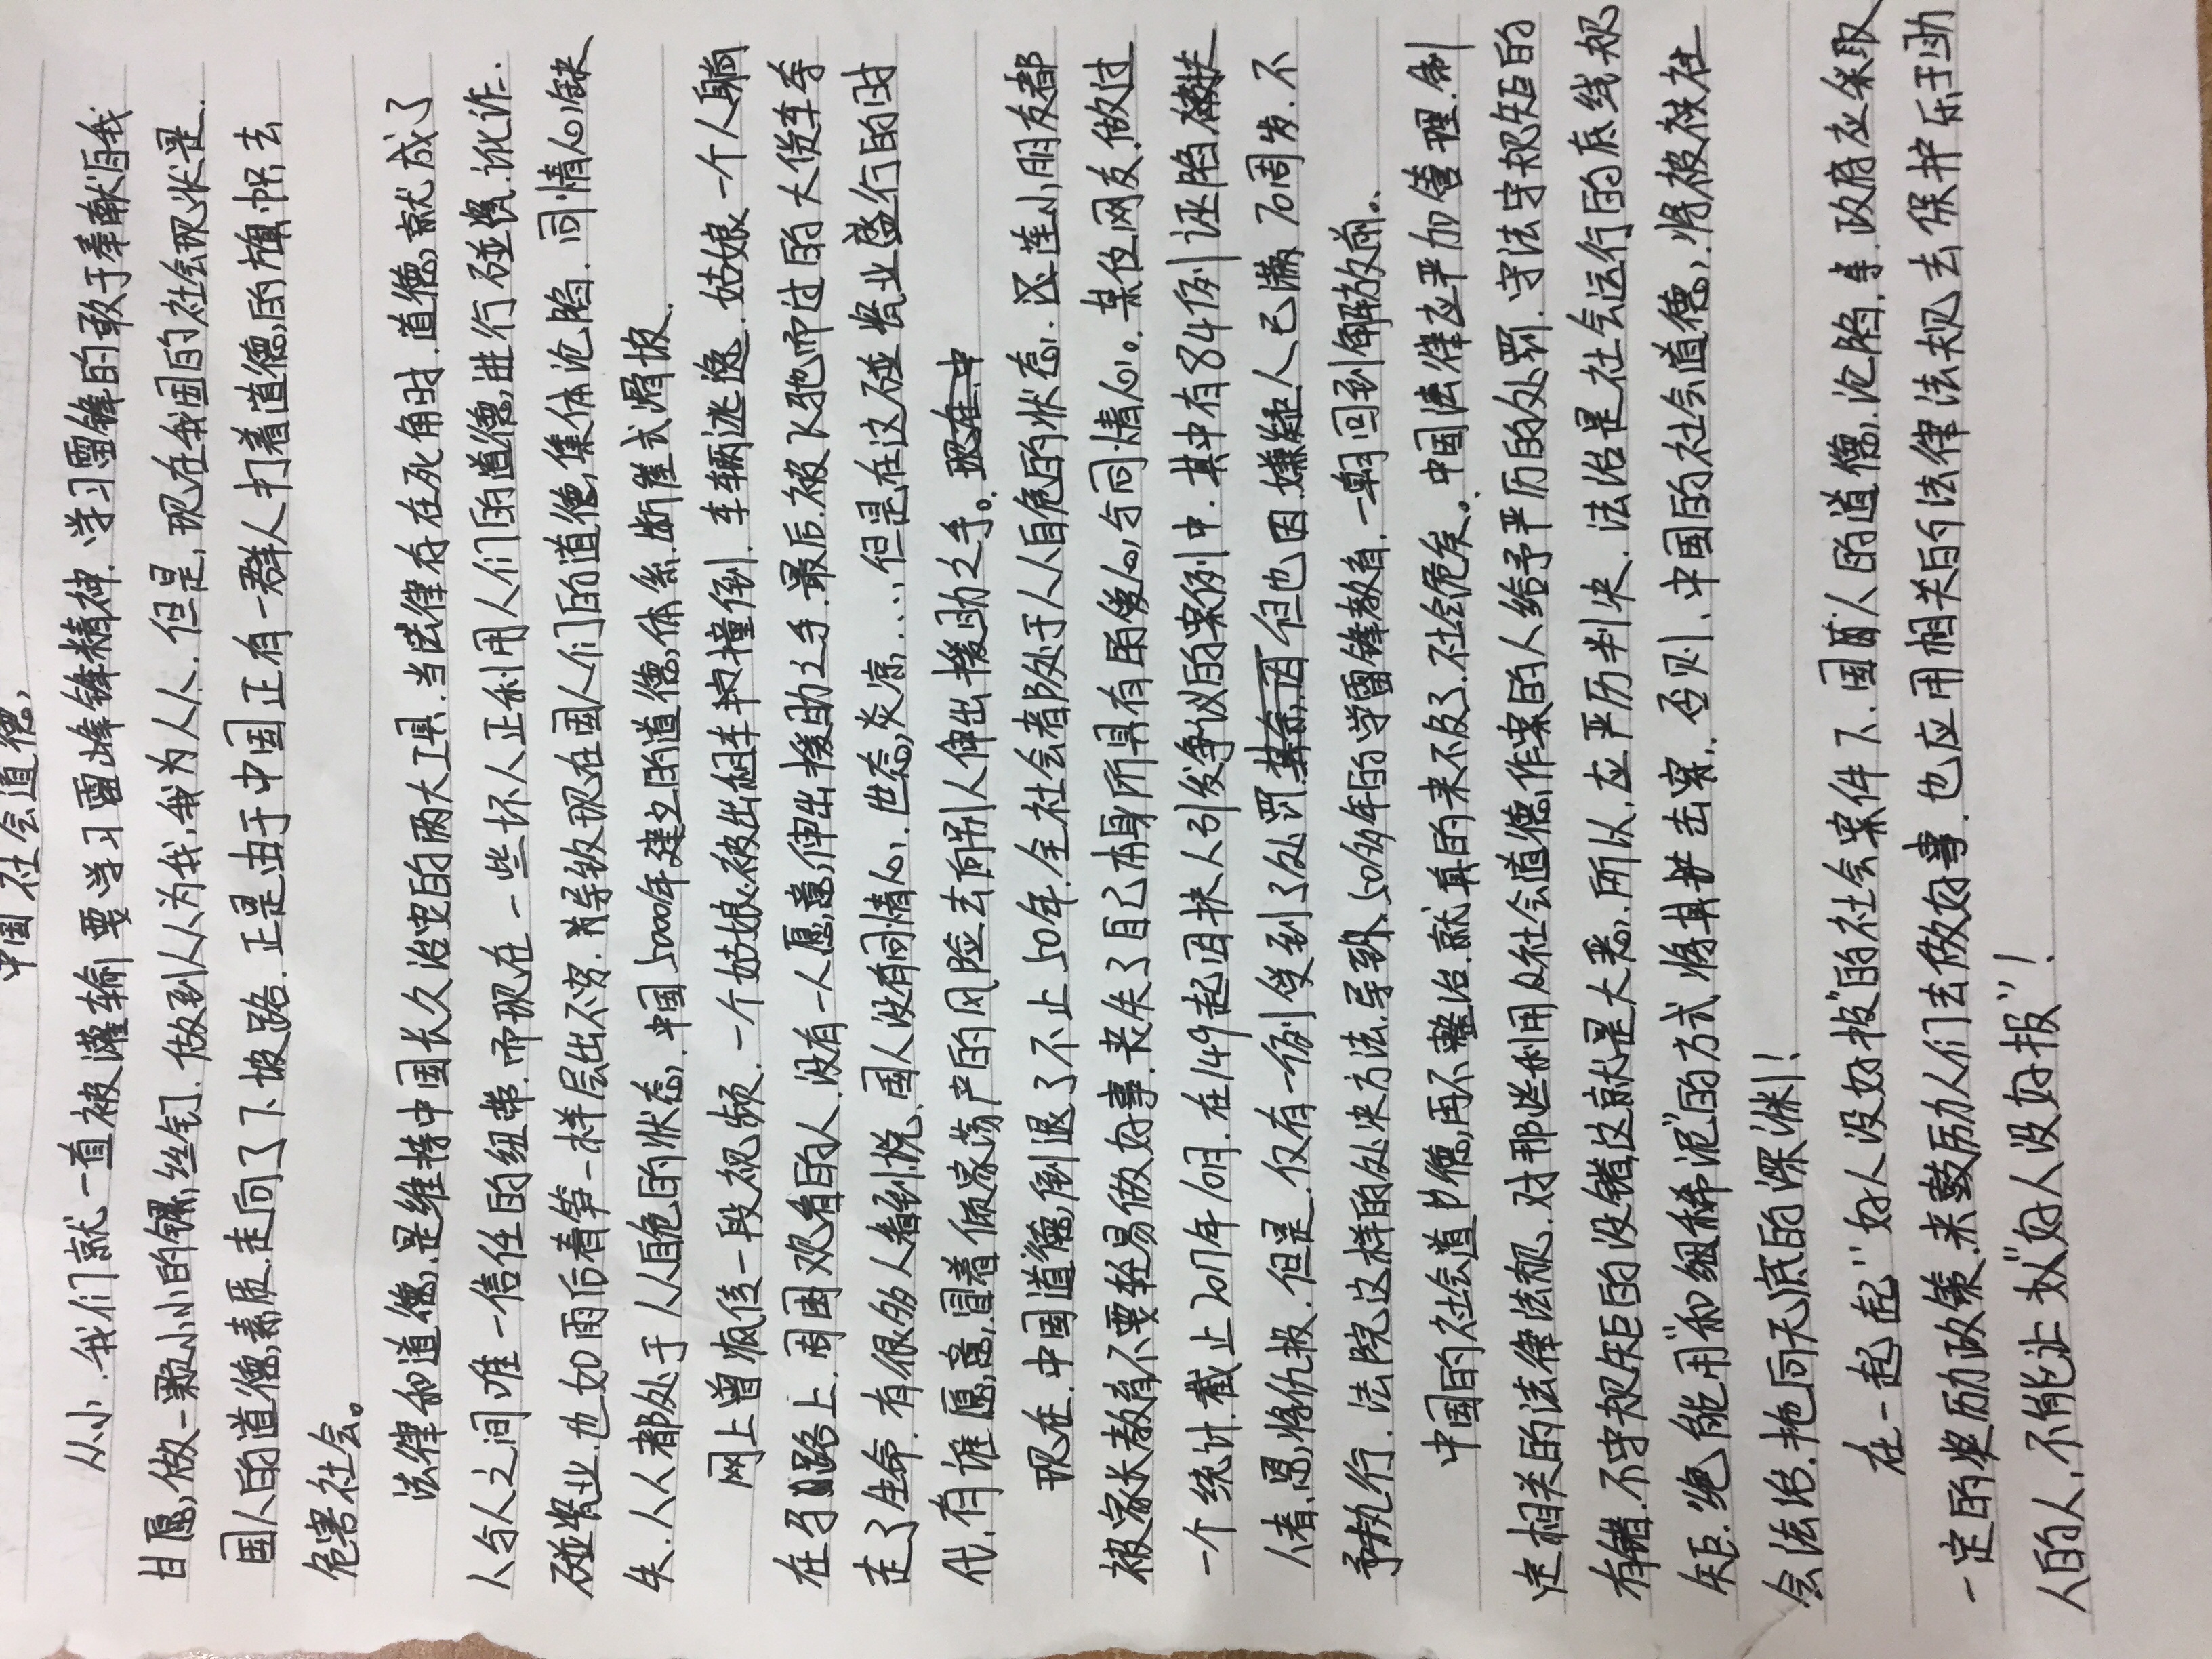 中国社会道德
从小,我们就一直被灌输要学习雷峰锋精神.学习雷锋的敢于奉献自我
甘愿做一颗小小的镙丝钉.做到人人为我,我为人人.但是,现在我国的社会现状是.
国人的道德素质.走向了下坡路.正是由于中国正有一群人打着道德的旗帜去
危害社会。
法律和道德,是维持中国长久治安的两大工具.当法律存在死角时.道德就成了
人与人之间唯一信任的纽带.而现在一些坏人正利用人们的道德进行碰瓷.讹诈.
碰瓷业.也如雨后春笋一样层出不穷.导致现在国人们的道德集体沦陷.同情心缺
失.人人都处于人人自危的状态.中国5000年建立的道德体系.断崖式滑坡.
网上曾疯传一段视频.一个姑娘.被出租车撞倒.车辆逃逸.姑娘一个人躺
在马路上.周围观看的人.没有一人愿意伸出援助之手.最后被飞驰而过的大货车夺
走了生命.有很多人看到说.国人没有同情心.世态炎凉...但是在这碰瓷业盛行的时
代.有谁愿意.冒着倾家荡产的风险去向别人伸出援助之手。现在.中
现在.中国道德倒退了不止50年.全社会者都处于人人自危的状态.还连小朋友都
被家长教育不要轻易做好事.丧失了自己本身所具有的爱心与同情心。某位网友.做过
一个统计.截止2017年10月.在149起因扶人引发争议的案例中.其中有84例诬陷搀扶
人者.恩将仇报.但是.仅有一例受到了处罚.其余,因但也因嫌疑人已满70周岁.不
予执行.法院这样的处决方法.导致50多年的学雷锋教育.一朝回到解放前。
中国的社会道德再不整治.就真的来不及了.社会危矣。中国法律应严加管理.制
定相关的法律法规.对那些利用社会道德作案的人给予严厉的处罚.守法守规矩的
有错.不守规矩的没错这就是大恶.所以.应严厉判决.法治是社会运行的底线规
矩.绝能用"和细稀泥"的方式将其击穿.否则.中国的社会道德,将被扶社
会法治.拖向无底的深渊!
在一起起"好人没好报"的社会案件下.国人的道德沦陷.政府应采取
一定的奖励政策.来鼓励人们去做好事.也应用相关的法律法规去保护乐于助
人的人.不能让"好人没好报"!